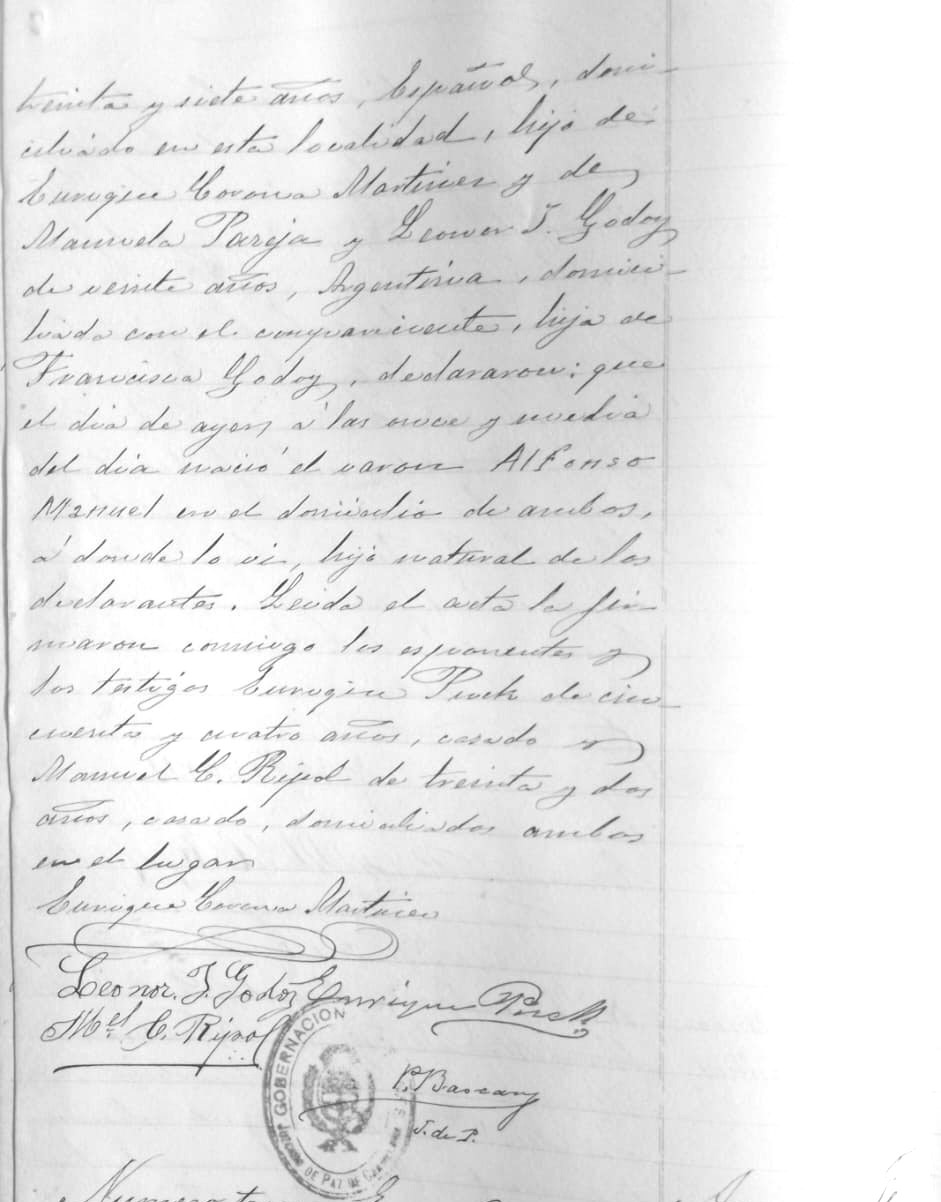 treinta y siete años, Español, domi-
ciliado en esta localidad, hijo de
Enrique Corona Martinez y de
Manuela Pareja y Leonor J. Godoy
de veinte años, Argentina, domici-
liada con el compareciente, hija de
Francisca Godoy, declararon: que
el dia de ayer, á las once y media
del dia nació el varon Alfonso
Manuel en el domicilio de ambos,
á donde lo vi, hijo natural de los
declarantes. Leida el acta la fir-
maron conmigo los esponentes y
los testigos Enrique de cin-
cuenta y cuatro años, casado y
Manuel C. Ripol de treinta y dos
años, casado, domiciliados ambos
en el lugar
Enrique Corona Martinez
Leonor. J. Godoy Enrique
Mel C. Ripol
GOBERNACION
JUZGADO DE PAZ DE
P. Bascary
J. de P.
Numero